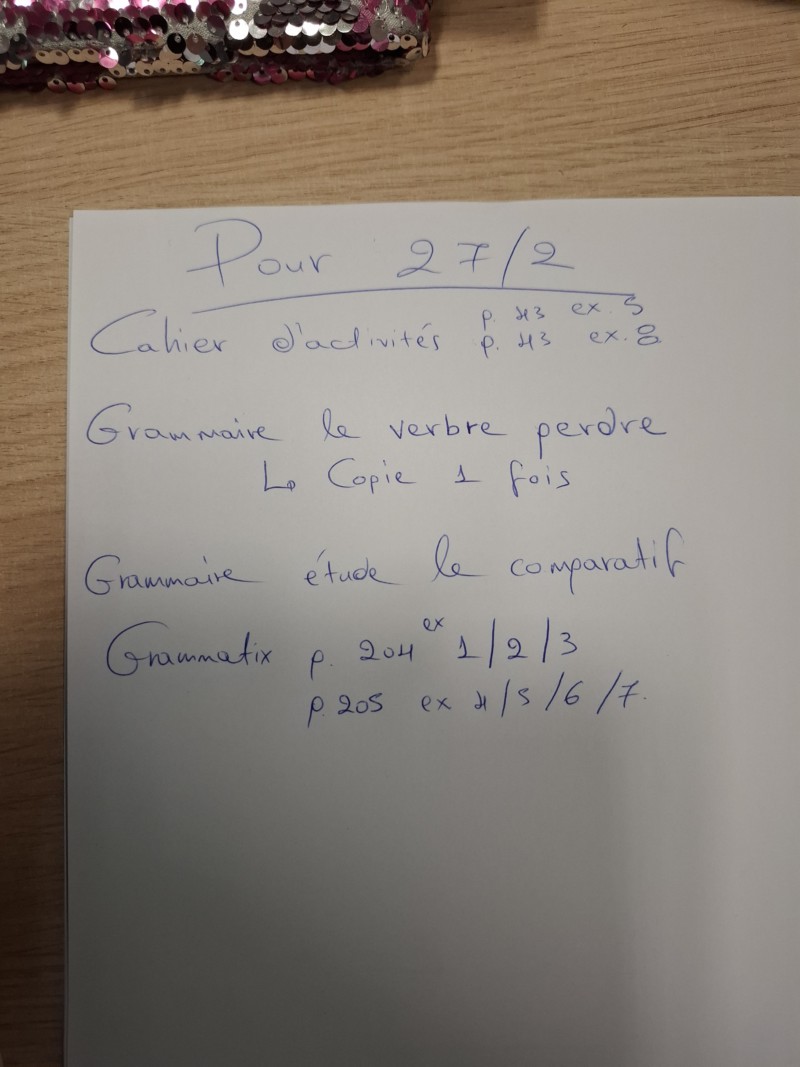 Pour 27/2
p. 43 ex. 5
Cahier d'activités p. 43 ex. 8
Grammaire le verbre perdre
↳ Copie 1 fois
Grammaire étude le comparatif
Grammatix p. 204 ex 1/2/3
p. 205 ex 4/5/6/7.